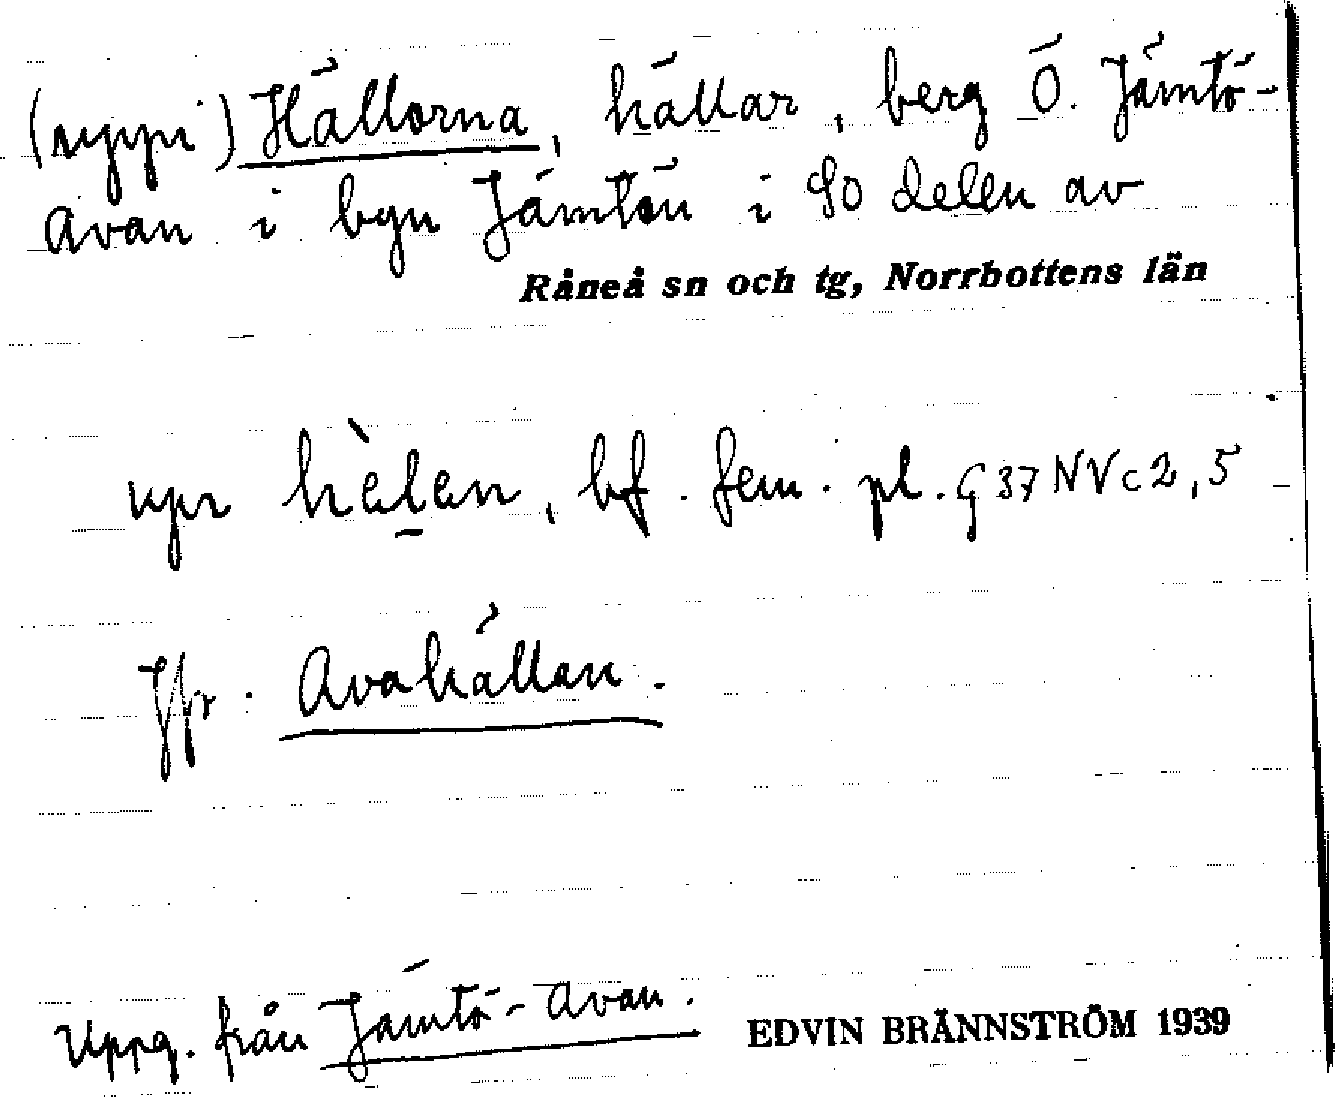 (uppi) Hällorna, hällar, berg Ö. Jämtö-
avan i byn Jämtön i SO delen av
Råneå sn och tg, Norrbottens län
upı hè̀ḻan, bf. fem. pl. G 37 NV c 2,5
Jfr. Avahällan.
Uppg. från Jämtö-Avan.
EDVIN BRÄNNSTRÖM 1939